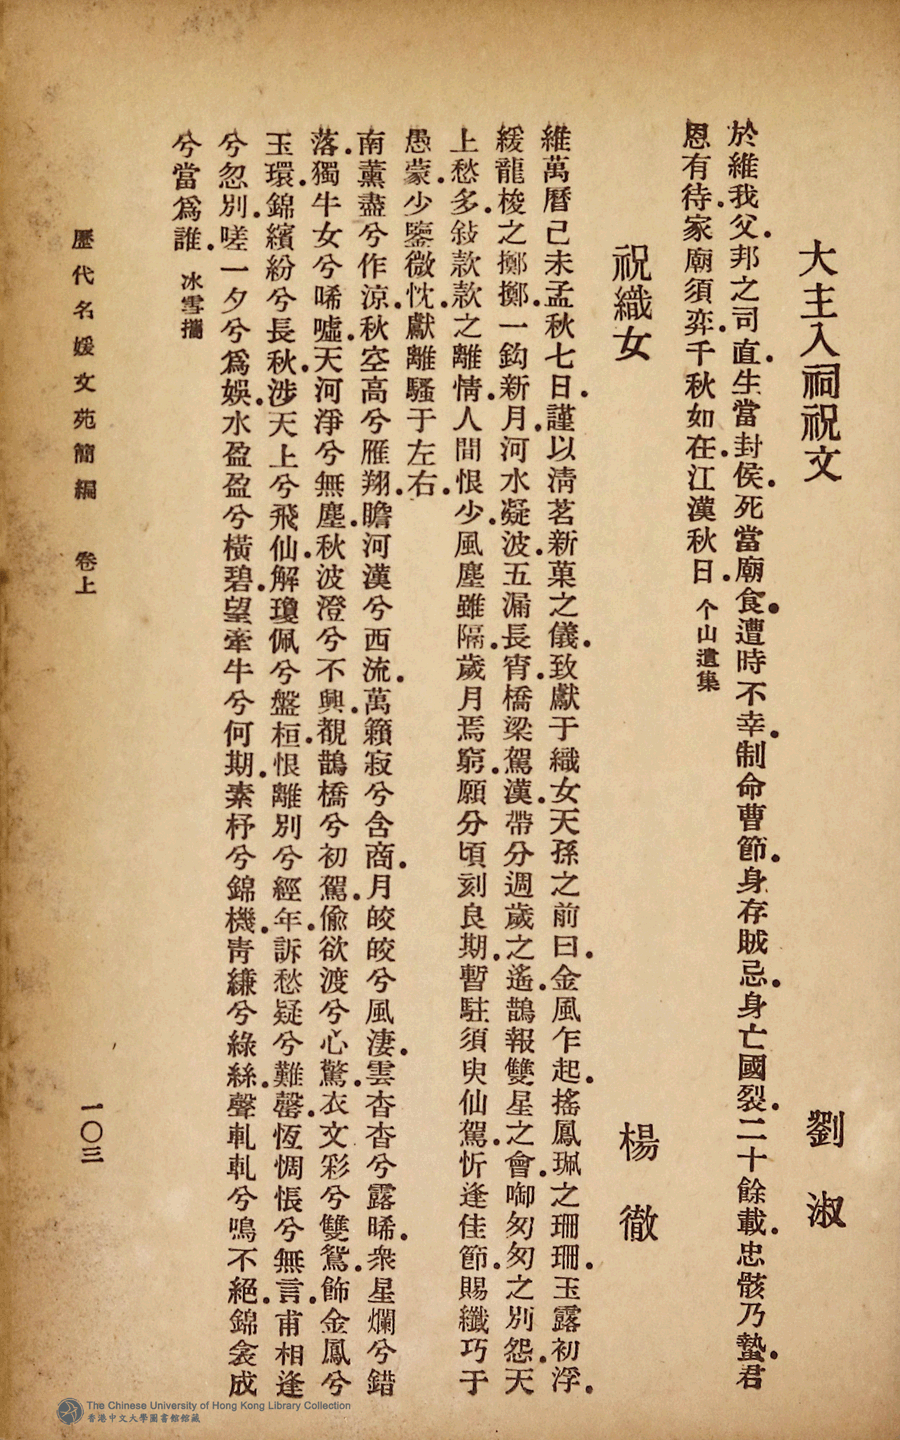 大主入祠祝文　劉淑
於維我父.邦之司直.生當封侯.死當廟食.遭時不幸.制命曹節.身存賊忌.身亡國裂.二十餘載.忠骸乃蟄.君
恩有待.家廟須弈.千秋如在.江漢秋日.个山遺集
祝織女　楊徹
維萬曆己未孟秋七日.謹以清茗新菓之儀.致獻于織女天孫之前曰.金風乍起.搖鳳珮之珊珊.玉露初浮.
緩龍梭之擲擲.一鈎新月.河水凝波.五漏長宵.橋梁駕漢.帶分週歲之遙.鵲報雙星之會.啣匆匆之別怨.天
上愁多.敍款款之離情.人間恨少.風塵雖隔.歲月焉窮.願分頃刻良期.暫駐須臾仙駕.忻逢佳節.賜纖巧于
愚蒙.少鑒微忱.獻離騷于左右.
南薰盡兮作涼.秋空高兮雁翔.瞻河漢兮西流.萬籟寂兮含商.月皎皎兮風淒.雲杳杳兮露晞.衆星爛兮錯
落.獨牛女兮唏噓.天河淨兮無塵.秋波澄兮不興.覩鵲橋兮初駕.偸欲渡兮心驚.衣文彩兮雙鴛.飾金鳳兮
玉環.錦繽紛兮長秋.涉天上兮飛仙.解瓊佩兮盤桓.恨離別兮經年.訴愁疑兮難罄.恆惆悵兮無言.甫相逢
兮忽別.嗟一夕兮爲娛.水盈盈兮橫碧.望牽牛兮何期.素杼兮錦機.靑縑兮綠絲.聲軋軋兮鳴不絕.錦衾成
兮當爲誰.冰雪攜
歷代名媛文苑簡編　卷上　一〇三
The Chinese University of Hong Kong Library Collection
香港中文大學圖書館館藏